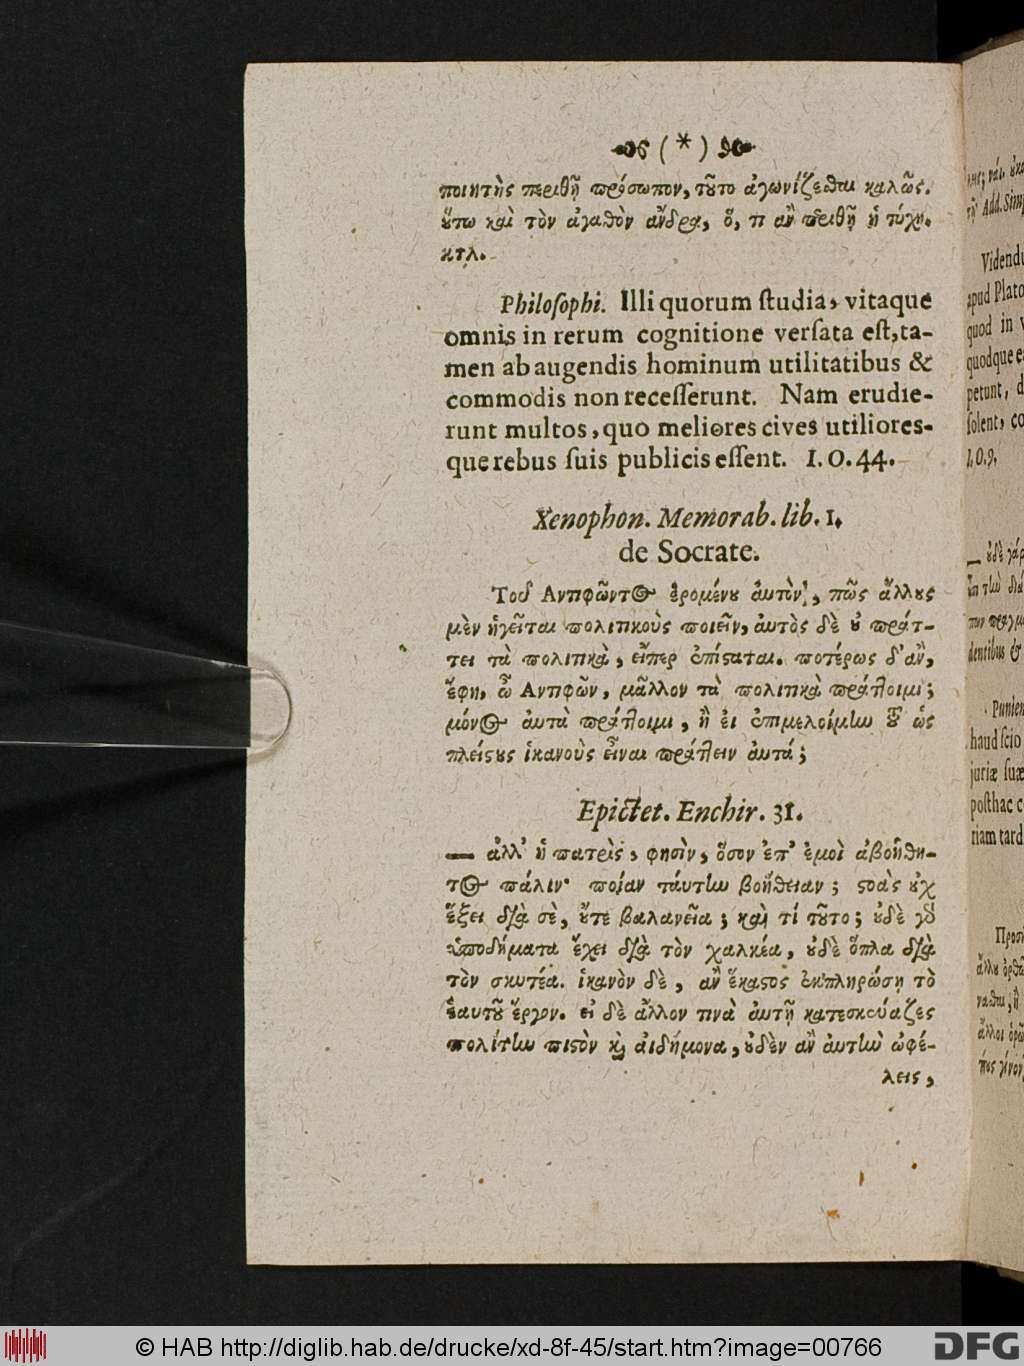 ( * )
ποιητὴς περιθῇ πρόσωπον, τοῦτο ἀγωνίζεσθαι καλῶς.
οὕτω καὶ τὸν ἀγαθὸν ἄνδρα, ὅ, τι ἂν περιθῇ ἡ τύχη.
κτλ.
Philoſophi. Illi quorum ſtudia, vitaque
omnis in rerum cognitione verſata eſt, ta-
men ab augendis hominum utilitatibus &
commodis non receſſerunt. Nam erudie-
runt multos, quo meliores cives utiliores-
que rebus ſuis publicis eſſent. I. O. 44.
Xenophon. Memorab. lib. 1.
de Socrate.
Τοῦ Αντιφῶντος ἐρομένου ἀυτὸν, πῶς ἄλλους
μὲν ἡγεῖται πολιτικοὺς ποιεῖν, ἀυτὸς δὲ οὐ πράτ-
τει τὰ πολιτικὰ, εἴπερ ἐπίσταται. ποτέρως δ' ἂν,
ἔφη, ὦ Αντιφῶν, μᾶλλον τὰ πολιτικὰ πράττοιμι;
μόνος ἀυτὰ πράττοιμι, ἢ εἰ ἐπιμελοίμην τοῦ ὡς
πλείστους ἱκανοὺς εἶναι πράττειν ἀυτά;
Epictet. Enchir. 31.
— ἀλλ' ἡ πατρὶς, φησὶν, ὅσον ἐπ' ἐμοὶ ἀβοήθη-
τος πάλιν· ποίαν ταύτην βοήθειαν; στοὰς οὐχ
ἕξει διὰ σὲ, οὔτε βαλανεῖα; καὶ τί τοῦτο; οὐδὲ γὸ
ὑποδήματα ἔχει διὰ τὸν χαλκέα, οὐδὲ ὅπλα διὰ
τὸν σκυτέα. ἱκανὸν δὲ, ἂν ἕκαστος ἐκπληρώσῃ τὸ
ἑαυτοῦ ἔργον. εἰ δὲ ἄλλον τινὰ ἀυτῇ κατεσκεύαζες
πολίτην πιστὸν κ̀ αἰδήμονα, οὐδὲν ἂν ἀυτὴν ὠφέ-
λεις,
Add. Simp
Videndu
apud Plato
quod in
quodque
petunt,
ſolent,
I. O. 9.
— οὐδὲ γάρ
dentibus &
Punien
haud ſcio
juriæ ſuæ
poſthac
riam tard
© HAB http://diglib.hab.de/drucke/xd-8f-45/start.htm?image=00766
DFG